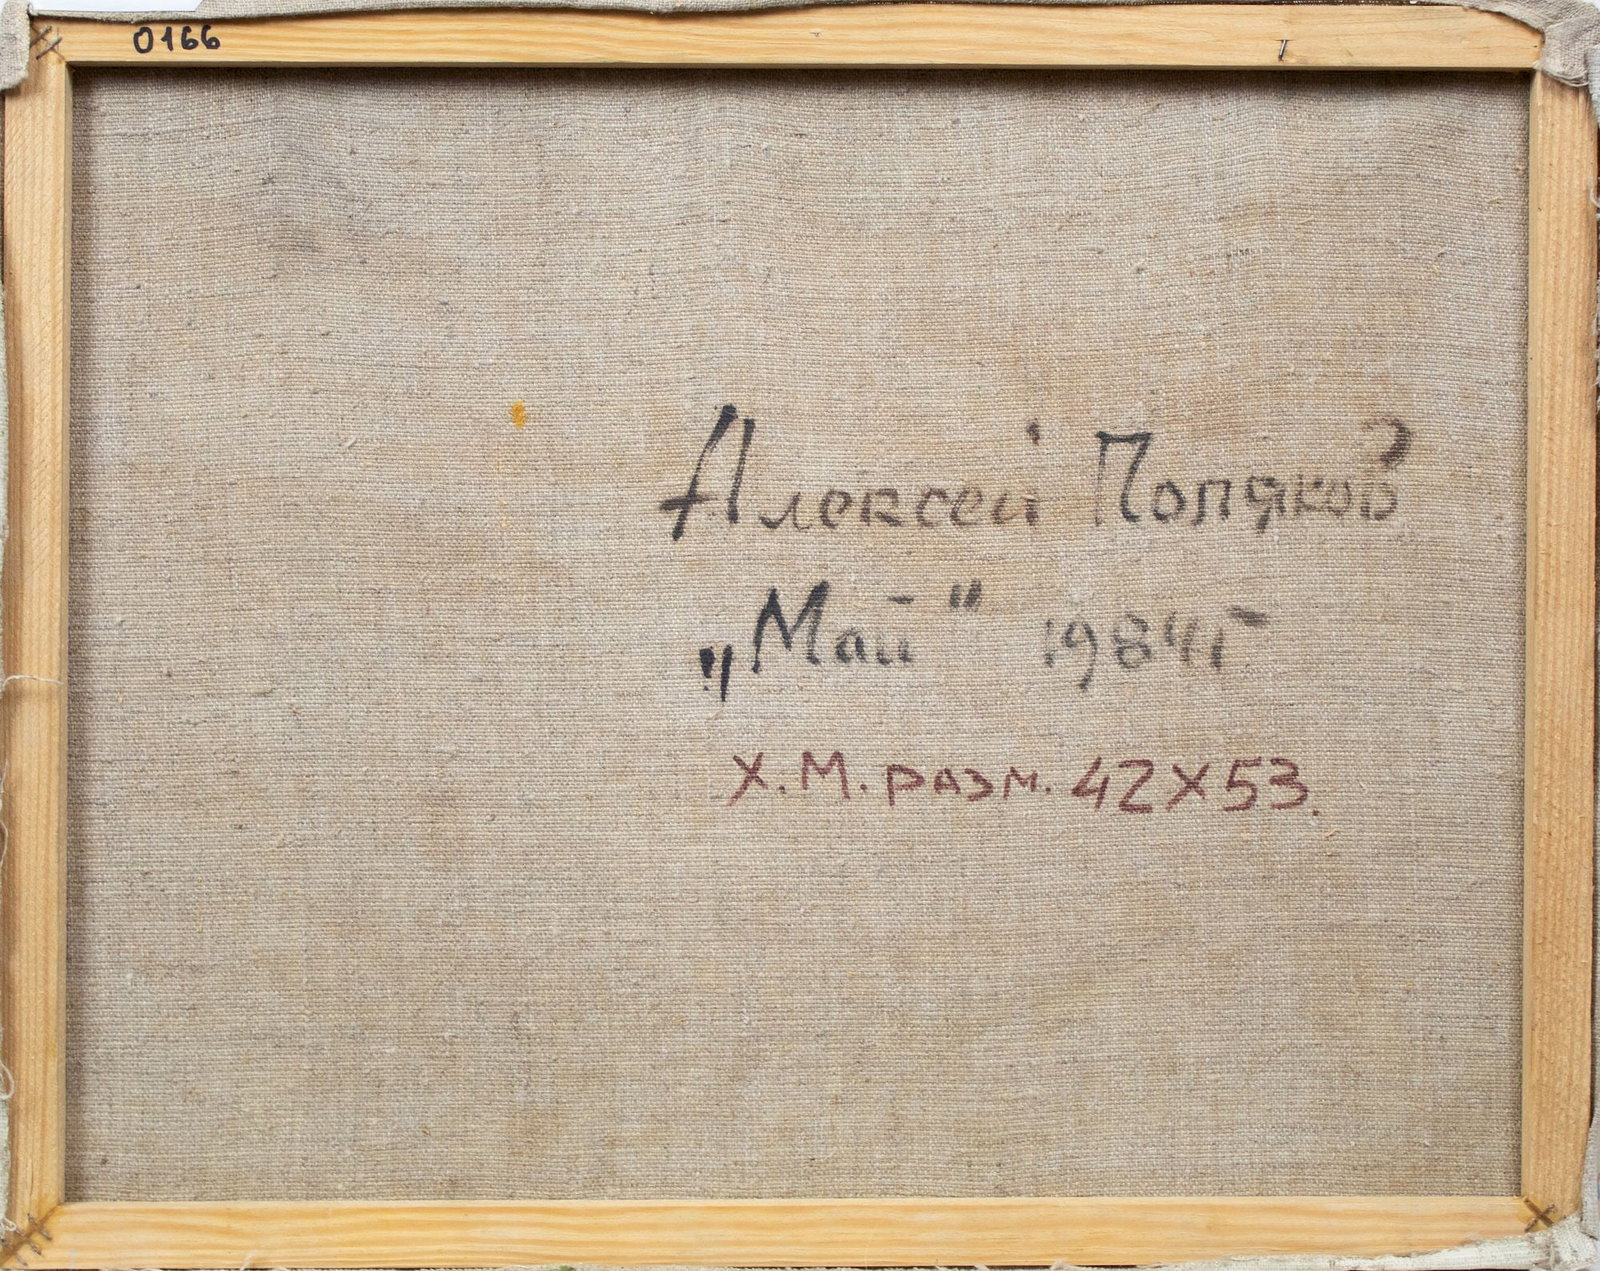 0166
Алексей Поляков
„Май" 1984г
Х.М. РАЗМ. 42Х53.